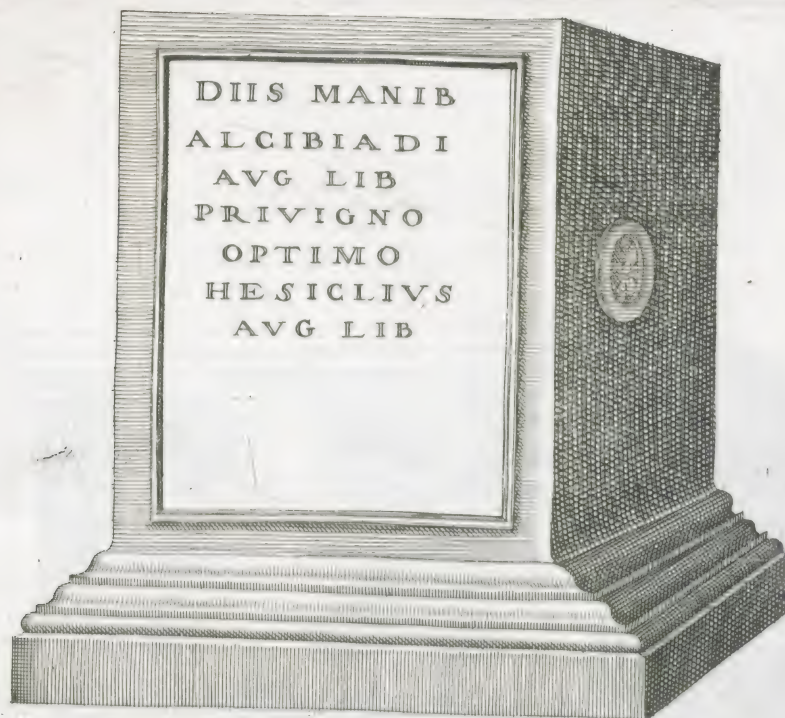 DIIS MANIB
ALCIBIADI
AVG LIB
PRIVIGNO
OPTIMO
HESICLIVS
AVG LIB